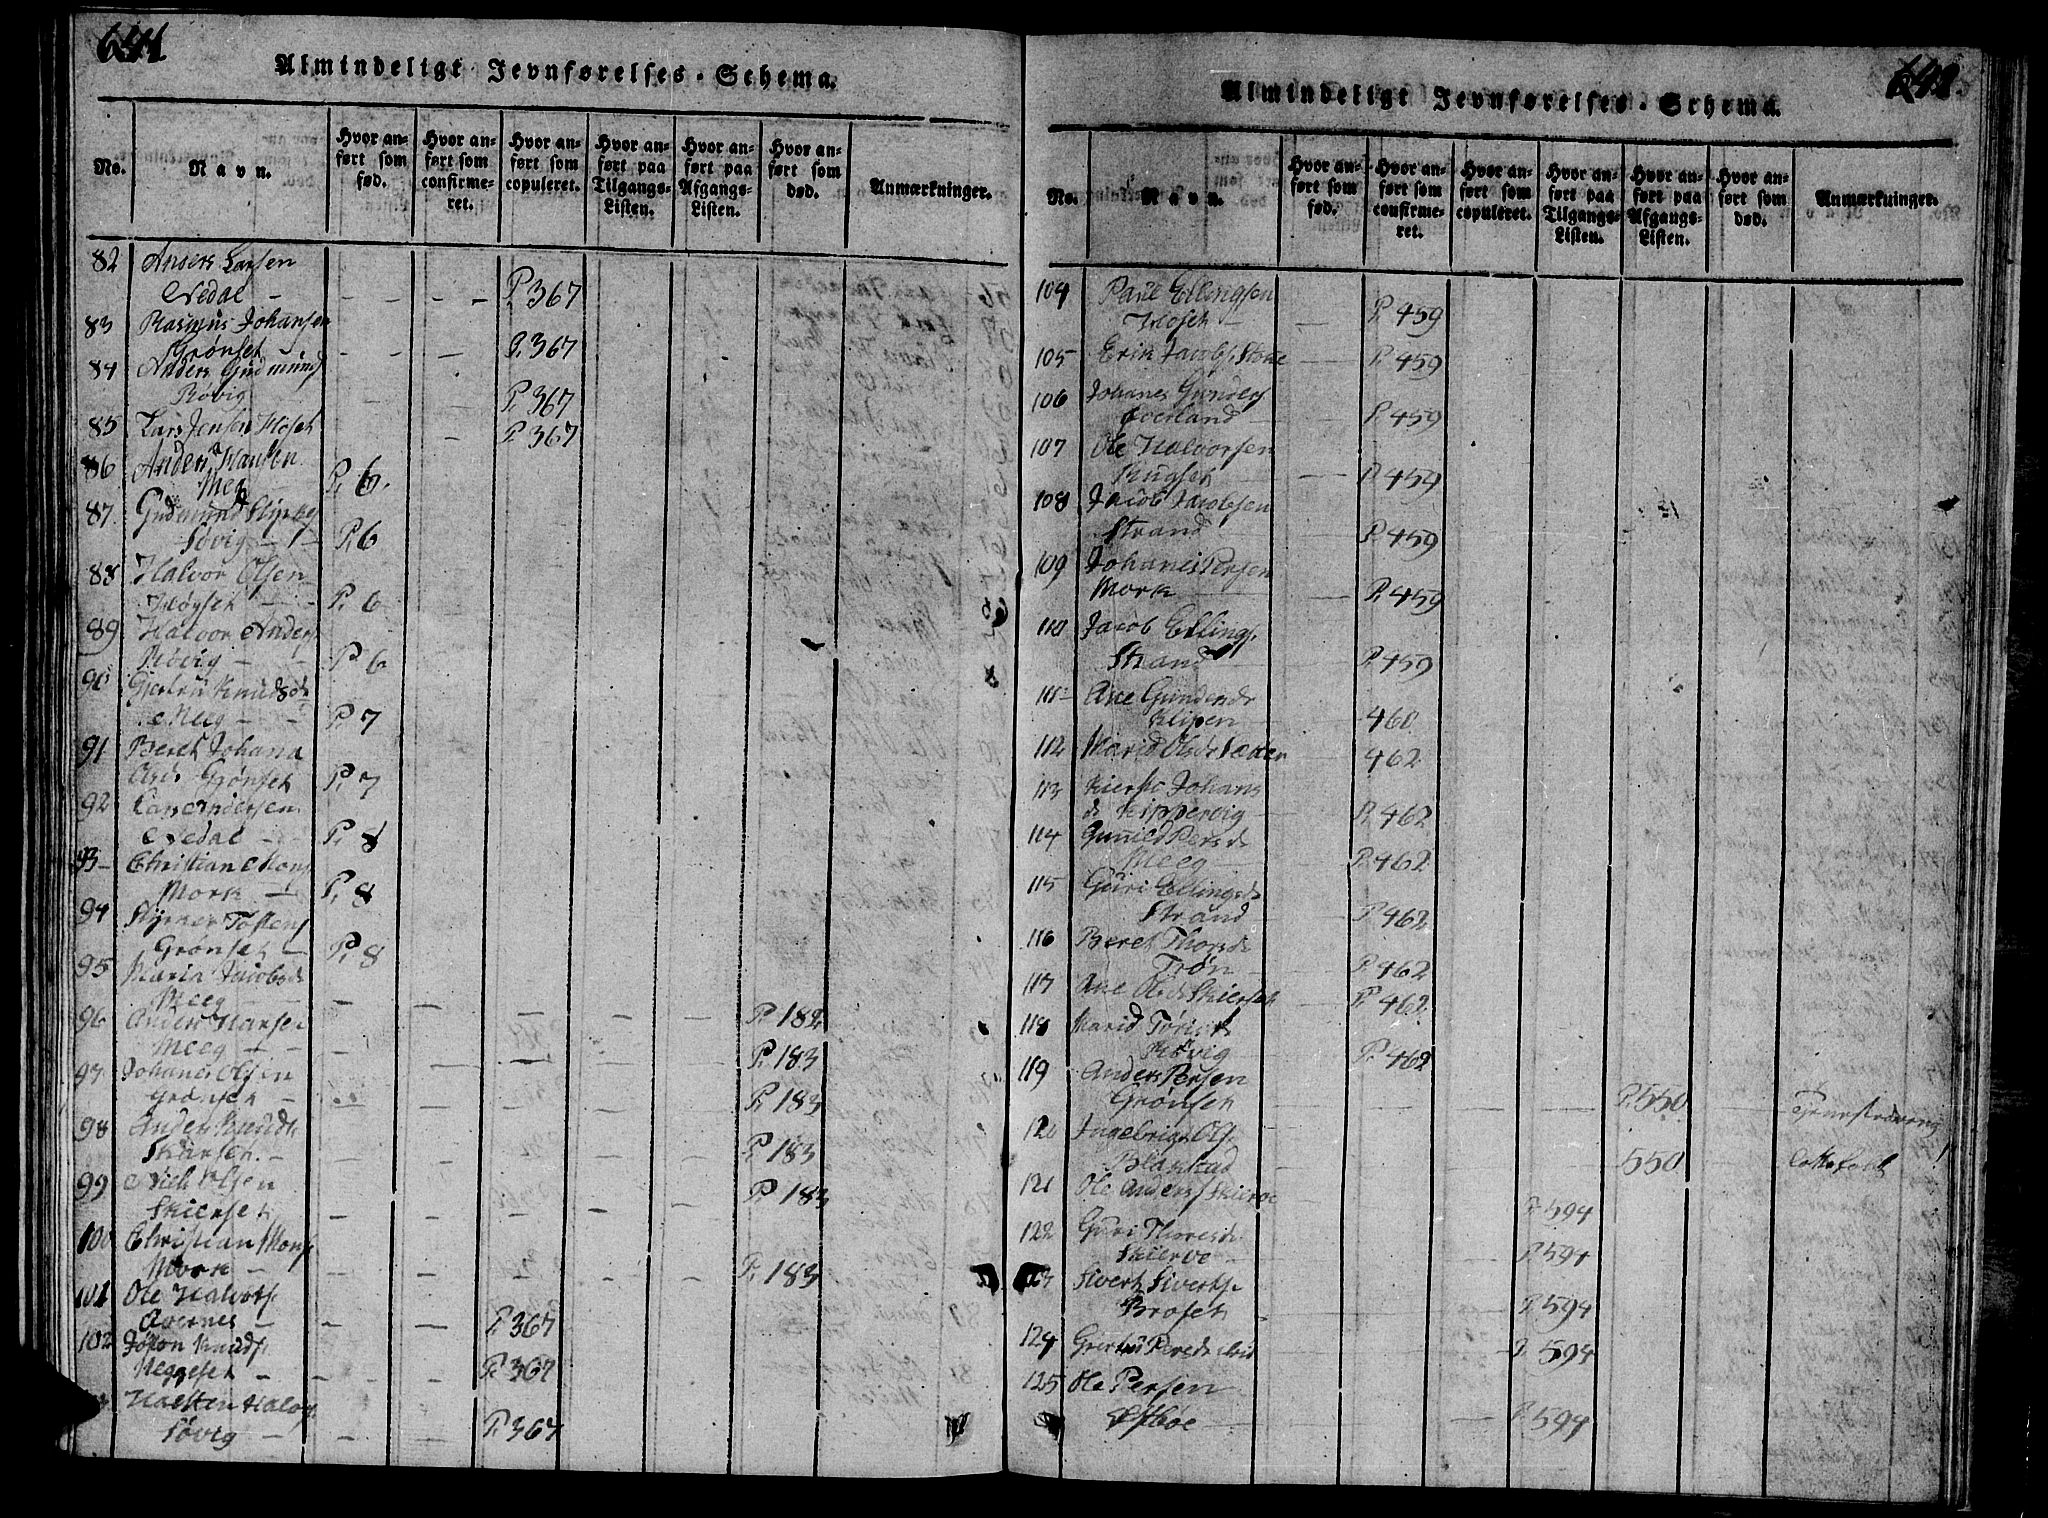 641.
Almindeligt Jevnførelses-Schema.
No.
Navn.
Hvor anført som fød.
Hvor anført som confirmeret.
Hvor anført som copuleret.
Hvor anført paa Tilgangs-Listen.
Hvor anført paa Afgangs-Listen.
Hvor anført som død.
Anmærkninger.
82 Anders Larsen
Nedal - - - - P. 367
83 Rasmus Johansen
Grønset - - - P. 367
84 Anders Gudmunds
Røvig - - P. 367
85 Lars Jensen Høset - P. 367
86 Anders Hansen
Meg P. 6.
87 Gudmund
Søvig P. 6
88 Halvor Olsen
Høyset - - P. 6
89 Halvor Anders
Røvig - - P. 6
90 Giertru Knudsdr
Meeg - - P. 7
91 Beret Johana
Olsdr Grønset P. 7
92 Lars Andersen
Nedal - - P. 8
93 Christian Mons
Mork - P. 8
94 Tostens
Grønset - P. 8
95 Maria Jacobsdr
Meeg - - P. 182
96 Anders Hansen
Meeg - - P. 183
97 Johanes Olsen
Grønset - P. 183
98 Anders Knudts
- P. 183
99 Niels Olsen
Skierset P. 183
100 Christian Mons
Mork - P. 183
101 Ole Halvors
Avernes - P. 367
102 Knuds
Heggeset - P. 367
Halsten Halvors
Søvig - P. 367
642.
Almindeligt Jevnførelses-Schema.
No.
Navn.
Hvor anført som fød.
Hvor anført som confirmeret.
Hvor anført som copuleret.
Hvor anført paa Tilgangs-Listen.
Hvor anført paa Afgangs-Listen.
Hvor anført som død.
Anmærkninger.
104 Paul Ellingsen
Hoset - P. 459
105 Erik Jacobs. P. 459
106 Johanes Gunders
Överland P. 459
107 Ole Halvorsen
Rugset P. 459
108 Jacob Jacobsen
Strand P. 459
109 Johanes Persen
Mork P. 459
110 Jacob Ellings.
Strand P. 459
111 Ane Gundersdr
Klipen 460
112 Marid Olsdr 462
113 Kiersti Johans
dr Kippervig P. 462
114 Gunild Persdr
Meeg P. 462
115 Guri Ellingsdr
Strand P. 462
116 Beret Thorsdr
Trøn P. 462
117 Ane Olsdr Skierset P. 462
118 Marid
Røvig P. 462
119 Anders Persen
Grønset P. 550
120 Ingebrigt Ols.
550
121 Ole Anders Skierve P. 594
122 Guri Thoresdr
Skierve P. 594
Sivert Siverts
Broset P. 594
124 Giertru Persdr P. 594
125 Ole Persen
P. 594